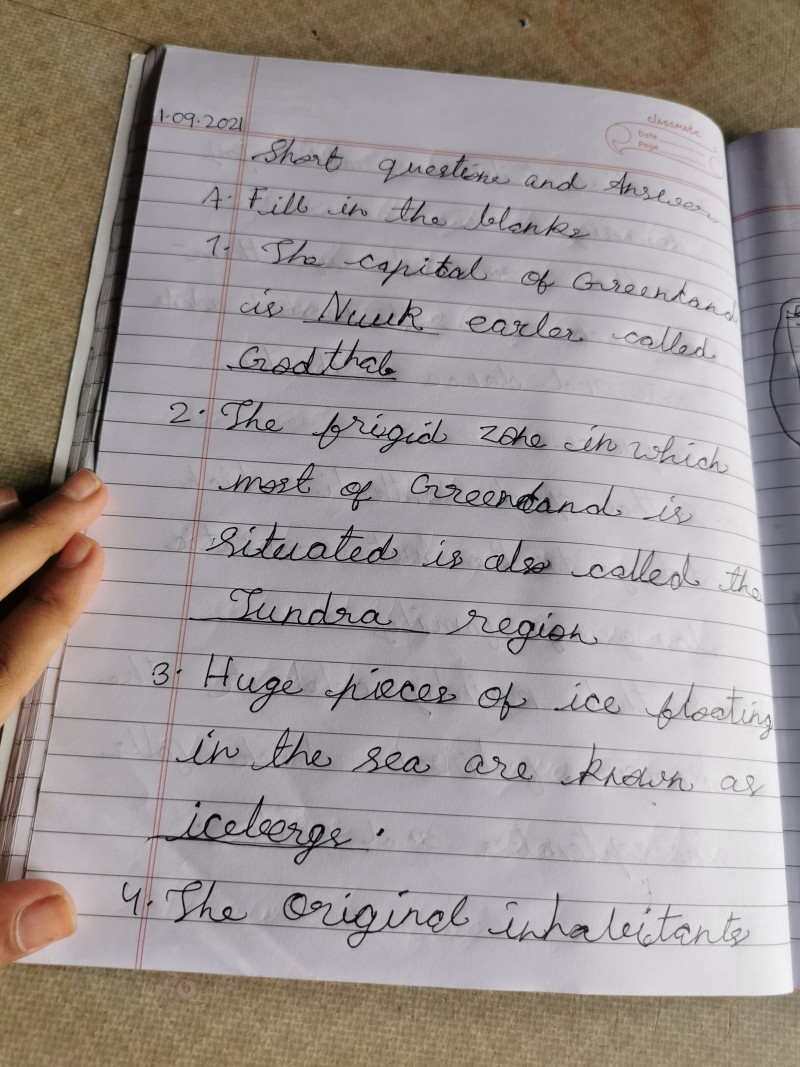 1.09.2021
classmate
Date
Page
Short questions and Answer
A. Fill in the blanks
1. The capital of Greenland
is Nuuk earler called
Godthab
2. The frigid zone in which
most of Greenland is
situated is also called the
Tundra region
3. Huge pieces of ice floating
in the sea are known as
icebergs.
4. The original inhabitants